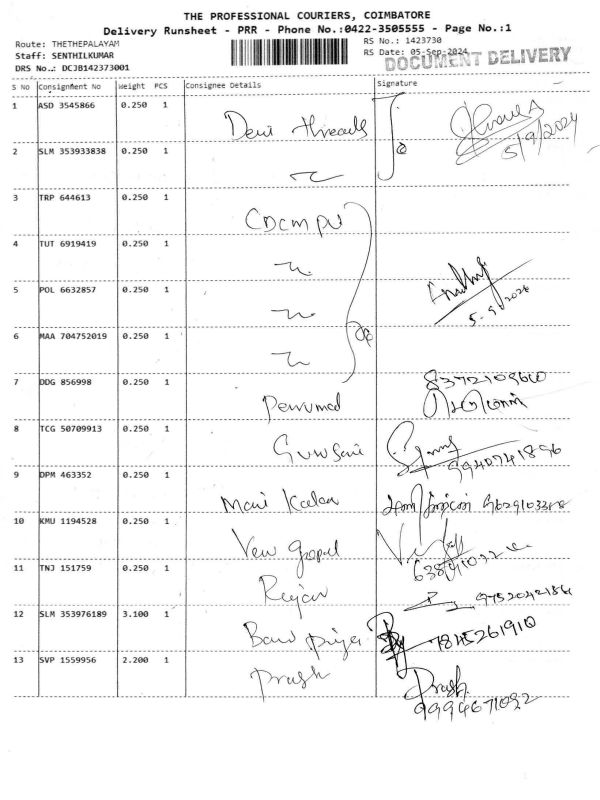 THE PROFESSIONAL COURIERS, COIMBATORE
Delivery Runsheet - PRR - Phone No.:0422-3505555 - Page No.:1
Route: THETHEPALAYAM
RS No.: 1423730
Staff: SENTHILKUMAR
RS Date: 05-Sep-2024
DOCUMENT DELIVERY
DRS No..: DCJB142373001
S No Consignment No Weight PCS Consignee Details Signature
1 ASD 3545866 0.250 1 Devi threads
5/9/2024
2 SLM 353933838 0.250 1
3 TRP 644613 0.250 1 CDCMPU
4 TUT 6919419 0.250 1
5 POL 6632857 0.250 1
6 MAA 704752019 0.250 1
7 DDG 856998 0.250 1 Perumal
8 TCG 50709913 0.250 1 9940741896
9 DPM 463352 0.250 1 Mani
10 KMU 1194528 0.250 1 Venu gopal
11 TNJ 151759 0.250 1 Rajan
12 SLM 353976189 3.100 1 7845261910
13 SVP 1559956 2.200 1 Prash
Prash
9994671092